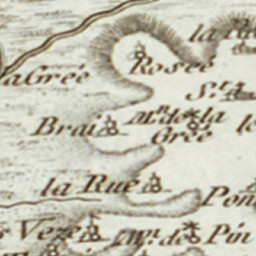 la
Rosée
la Grée
S.te
Brai
M.in de la
Grée
la Rue
Pon
Veze
M.in de
Pin